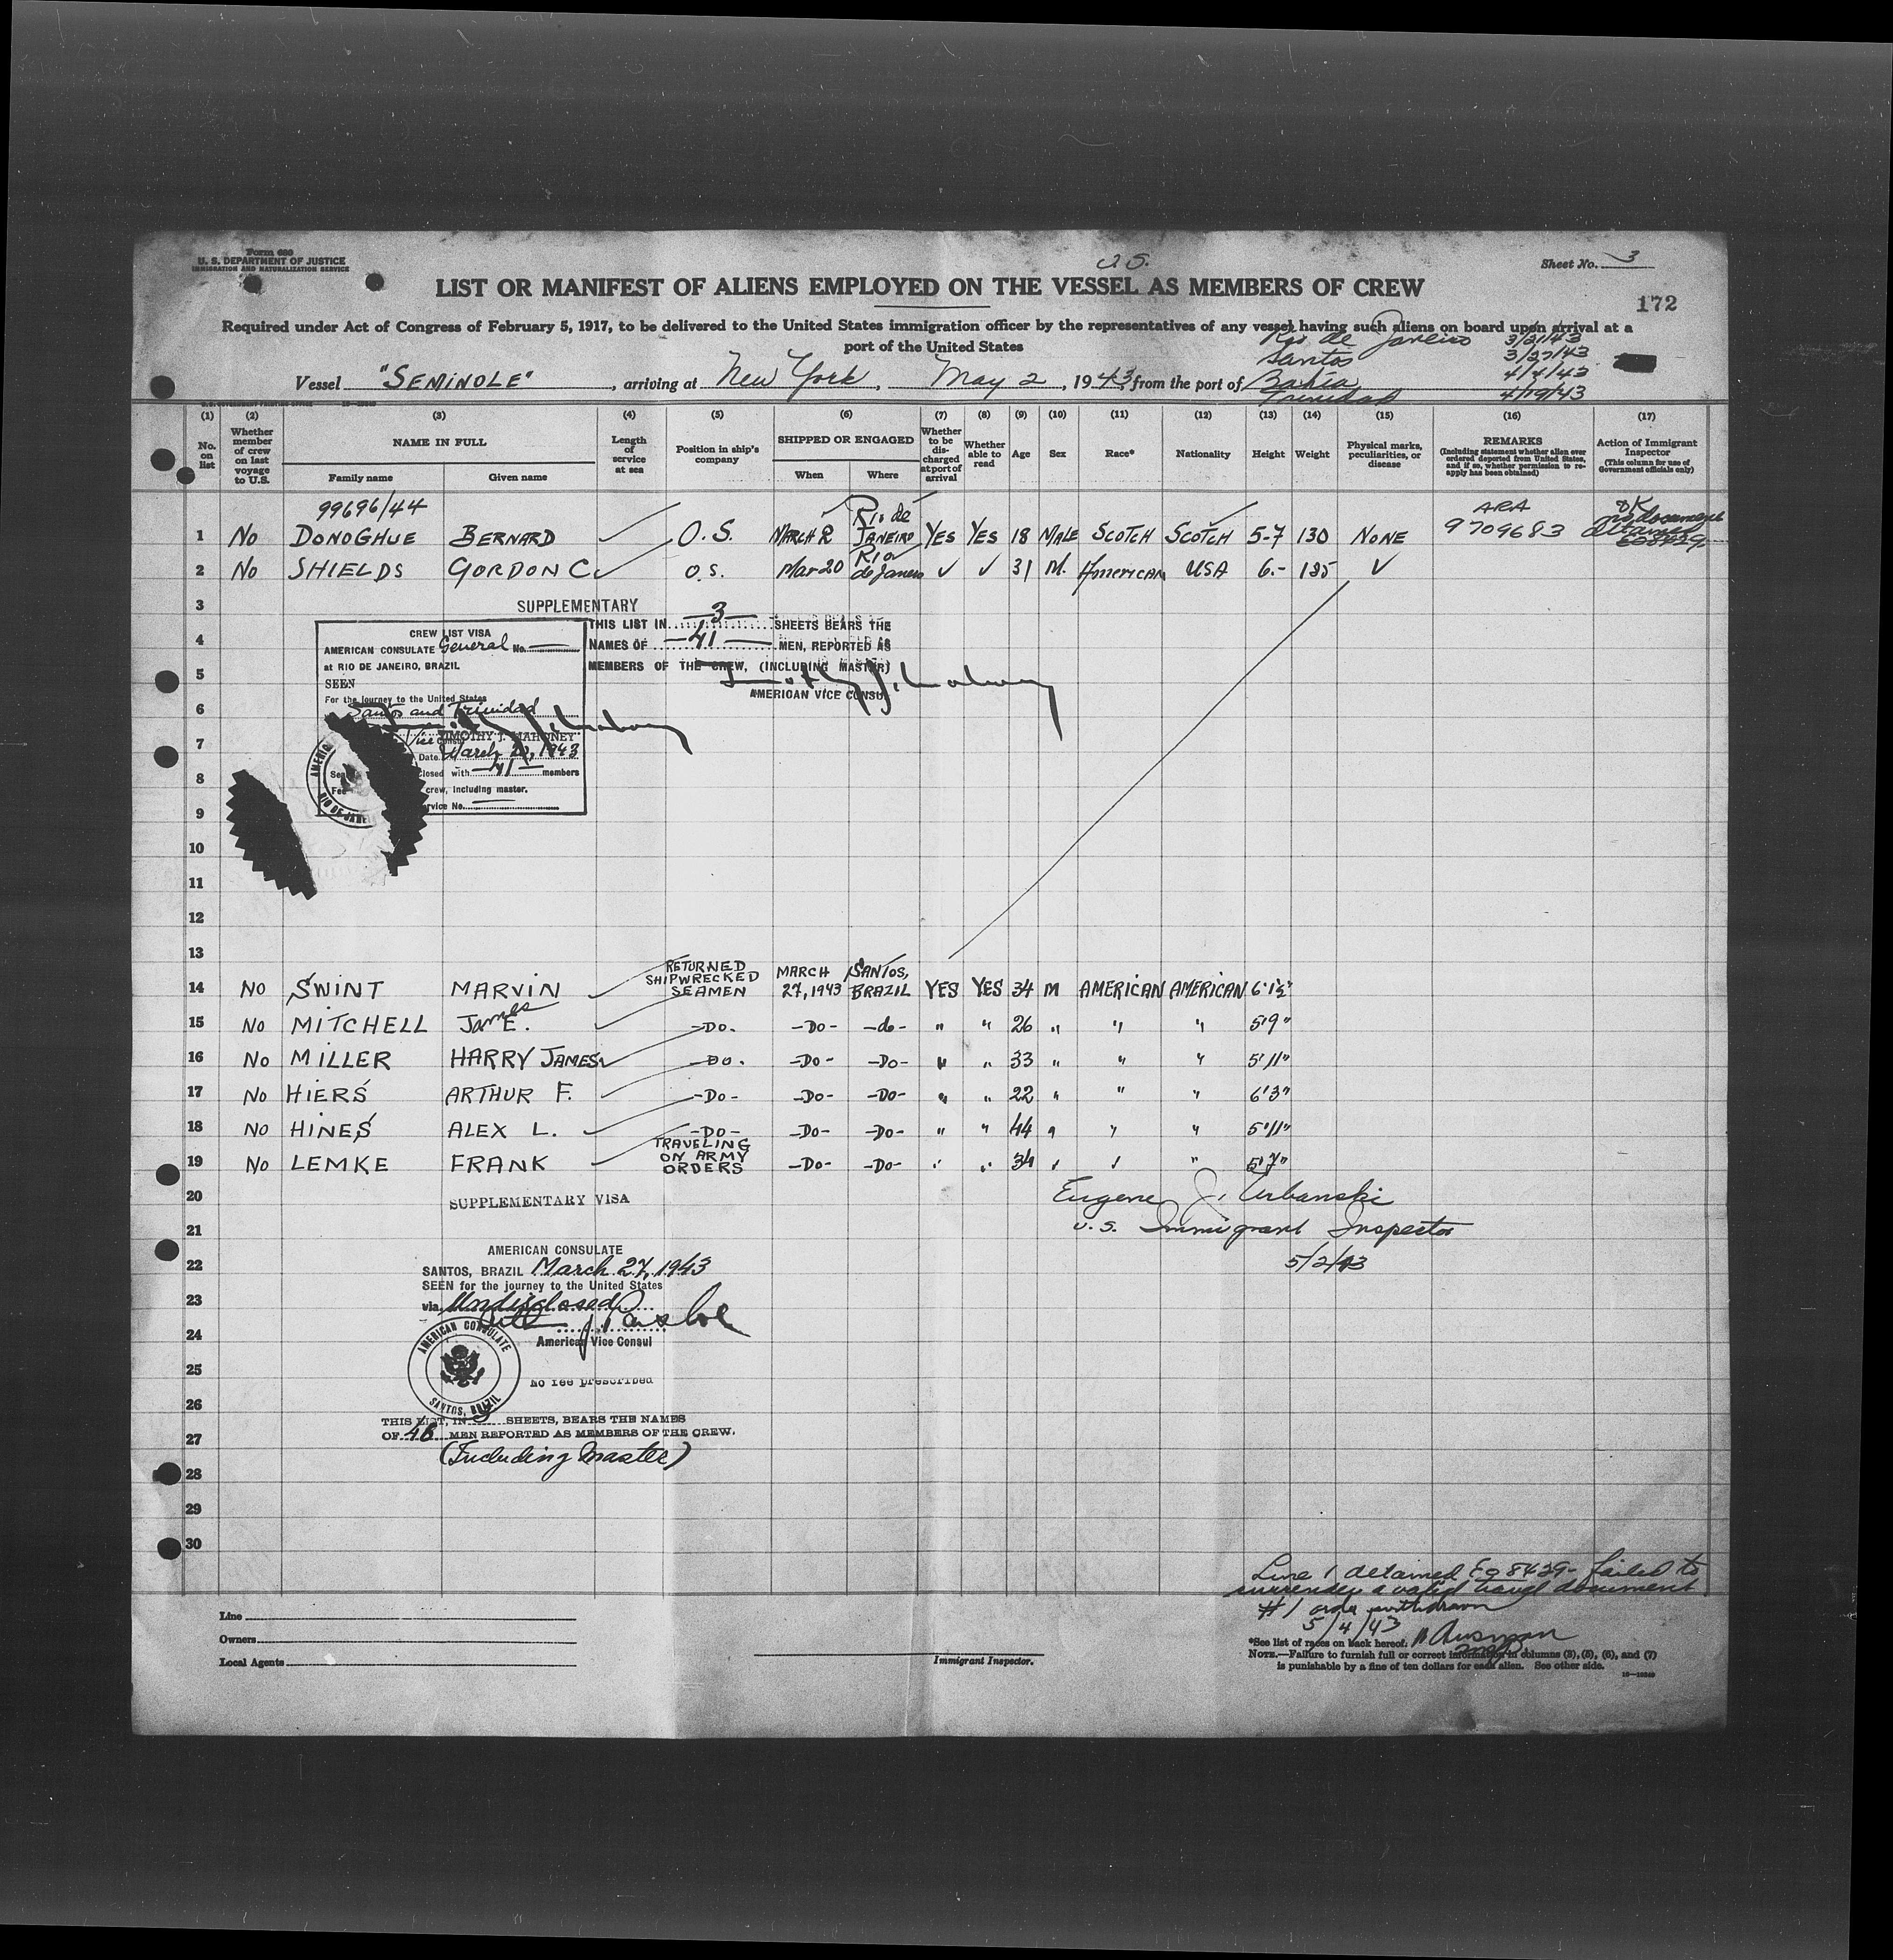 Form 680
U. S. DEPARTMENT OF JUSTICE
IMMIGRATION AND NATURALIZATION SERVICE
Sheet No. 3
U.S.
LIST OR MANIFEST OF ALIENS EMPLOYED ON THE VESSEL AS MEMBERS OF CREW
172
Required under Act of Congress of February 5, 1917, to be delivered to the United States immigration officer by the representatives of any vessel having such aliens on board upon arrival at a
port of the United States
Rio de Janeiro 3/21/43
Santos 3/27/43
Vessel "SEMINOLE", arriving at New York, May 2, 1943, from the port of Bahia 4/4/43
Trinidad 4/19/43
(1) (2) (3) (4) (5) (6) (7) (8) (9) (10) (11) (12) (13) (14) (15) (16) (17)
No. on list
Whether member of crew on last voyage to U.S.
NAME IN FULL
Family name Given name
Length of service at sea
Position in ship's company
SHIPPED OR ENGAGED
When Where
Whether to be discharged at port of arrival
Whether able to read
Age Sex Race* Nationality Height Weight
Physical marks, peculiarities, or disease
REMARKS
(Including statement whether alien ever ordered deported from United States, and if so, whether permission to reapply has been obtained)
Action of Immigrant Inspector
(This column for use of Government officials only)
99696/44
1 No DONOGHUE BERNARD O.S. MARCH 2 Rio de JANEIRO YES YES 18 MALE SCOTCH SCOTCH 5-7 130 NONE ARA 9709683 OK no document
2 No SHIELDS GORDON C O.S. Mar 20 Rio de Janeiro ✓ ✓ 31 M. American USA 6.- 185 ✓
3 SUPPLEMENTARY
THIS LIST IN 3 SHEETS BEARS THE
4 NAMES OF 41 MEN, REPORTED AS
5 MEMBERS OF THE CREW, (INCLUDING MASTER)
AMERICAN VICE CONSUL
CREW LIST VISA
AMERICAN CONSULATE General No.
at RIO DE JANEIRO, BRAZIL
SEEN
For the journey to the United States
6 Santos and Trinidad
7 Vice Consul TIMOTHY J. MAHONEY
Date March 20, 1943
8 closed with 41 members
crew, including master.
9
10
11
12
13
14 NO SWINT MARVIN RETURNED SHIPWRECKED SEAMEN MARCH 27, 1943 SANTOS, BRAZIL YES YES 34 M AMERICAN AMERICAN 6'1½"
15 NO MITCHELL James E. -DO- -DO- -do- " " 26 " " " 5'9"
16 NO MILLER HARRY JAMES -DO- -DO- -DO- " " 33 " " " 5'11"
17 NO HIERS ARTHUR F. -DO- -DO- -DO- " " 22 " " " 6'3"
18 NO HINES ALEX L. -DO- -DO- -DO- " " 44 " " " 5'11"
19 NO LEMKE FRANK TRAVELING ON ARMY ORDERS -DO- -DO- " " 34 " " " 5'7"
20 SUPPLEMENTARY VISA Eugene J. Urbanski
21 U.S. Immigrant Inspector
AMERICAN CONSULATE
22 SANTOS, BRAZIL March 27, 1943 5/2/43
SEEN for the journey to the United States
23 via Undisclosed
24 American Vice Consul
AMERICAN CONSULATE SANTOS, BRAZIL
25 No fee prescribed
26 THIS LIST, IN 3 SHEETS, BEARS THE NAMES
27 OF 46 MEN REPORTED AS MEMBERS OF THE CREW.
(Including Master)
28
29
30
Line 1 detained Eg 8429- failed to
surrender a valid travel document
#1 order withdrawn
5/4/43
Line
Owners
Local Agents
Immigrant Inspector.
*See list of races on back hereof.
NOTE.—Failure to furnish full or correct information in columns (3), (5), (6), and (7)
is punishable by a fine of ten dollars for each alien. See other side.